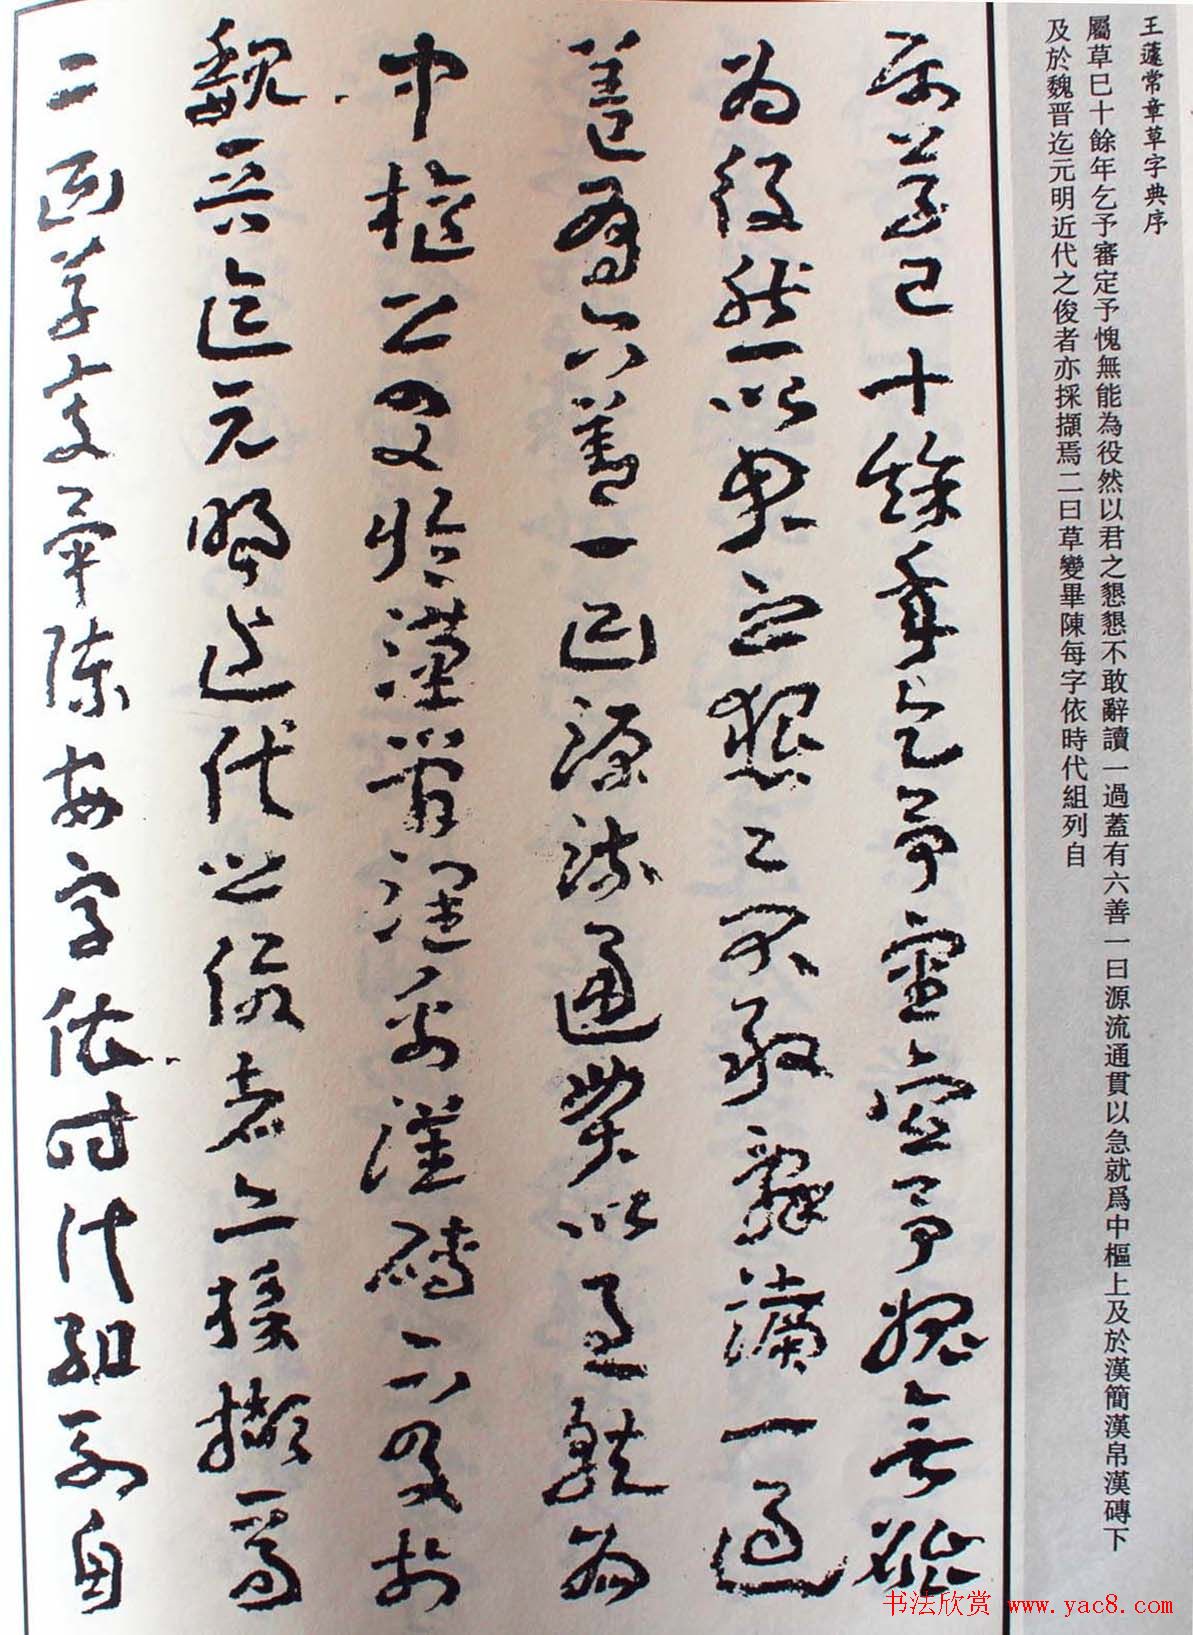 王蘧常章草字典序
屬草巳十餘年乞予審定予愧無能為役然以君之懇懇不敢辭讀一過蓋有六善一曰源流通貫以急就爲中樞上及於漢簡漢帛漢磚下
及於魏晋迄元明近代之俊者亦採擷焉二曰草變畢陳每字依時代組列自
屬草已十餘年乞予審定予愧無能
為役然以君之懇〻不敢辭讀一過
蓋有六善一曰源流通貫以急就為
中樞上及於漢簡漢帛漢磚下及於
魏晋迄元明近代之俊者亦採擷焉
二曰草變畢陳每字依時代組列自
书法欣赏 www.yac8.com